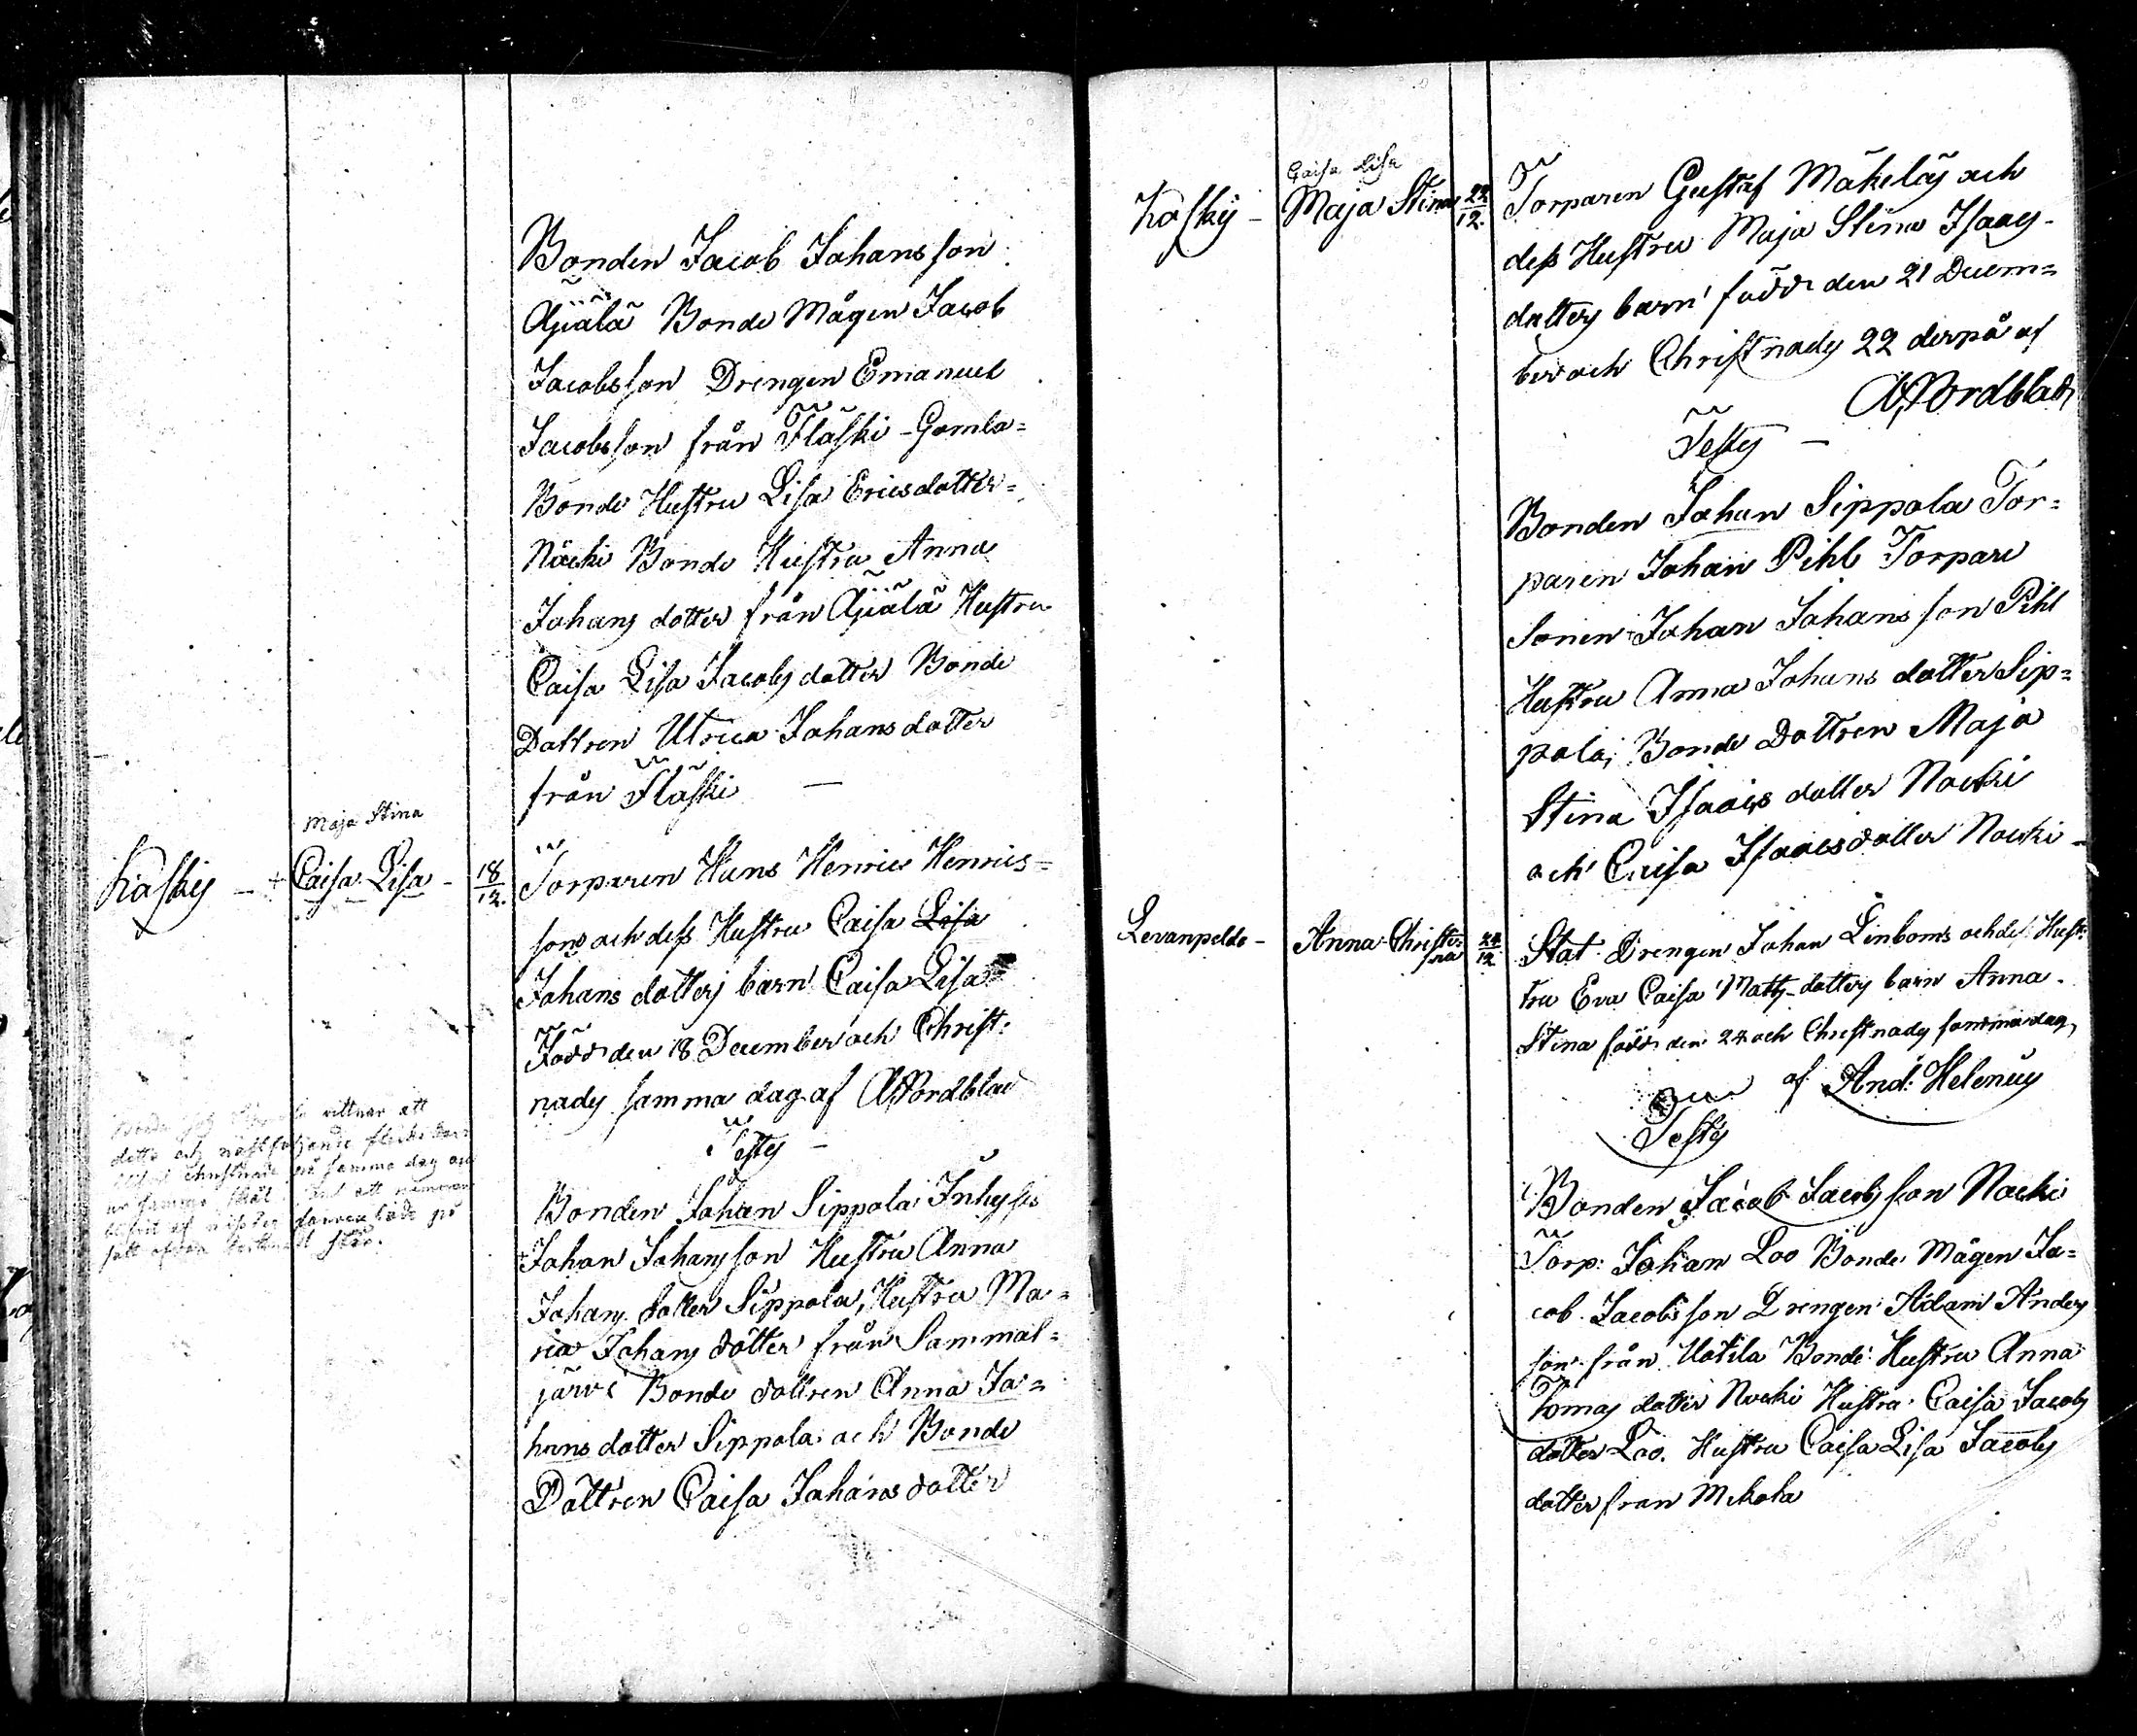 Bonden Jacob Johansson
Äijälä Bonde Mågen Jacob
Jacobsson Drengen Emanuel
Jacobsson från Flaski - Gamla=
Bonde Hustru Lisa Ericsdotter=
Nacki Bonde Hustru Anna
Johans dotter från Äijälä Hustru
Caisa Lisa Jacobs dotter Bonde
Dottren Ulrica Johans dotter
från Flaski —
Maja Stina
Kasky — + Caisa Lisa - 18/12.
Torparen Hans Henric Henrics=
sons och dess Hustru Caisa Lisa
Johans dotters barn Caisa Lisa
Född den 18 December och Christ:
nades samma dag af A Nordblad
Testes —
Bonden Johan Sippola Inhyses
+ Johan Johansson Hustru Anna
Johans dotter Sippola, Hustru Ma=
ria Johans dotter från Sammal=
järvi Bonde dottren Anna Jo=
hans dotter Sippola och Bonde
Dottren Caisa Johans dotter
vittnar att
detta och nästföljande
Christnade på samma dag och
att
Caisa Lisa
Kasky - Maja Stina 22/12.
Torparen Gustaf Mäkeläs och
dess Hustru Maja Stina Isaacs-
dotters barn född den 21 Decem=
ber och Christnades 22 derpå af
A Nordblad
Testes —
Bonden Johan Sippola Tor=
paren Johan Pihl Torpare
Sonen Johan Johansson Pihl
Hustru Anna Johans dotter Sip=
pola, Bonde Dottren Maja
Stina Isaacs dotter Nacki
och Caisa Isaacsdotter Nacki -
Levanpeldo - Anna Christi= na 24/12
Stat Drengen Johan Linboms och dess Hust:
tru Eva Caisa Matts-dotters barn Anna
Stina född den 24 och Christnades samma dag,
af And: Helenius
Testes
Bonden Jacob Jacobsson Nacki
Torp: Johan Loo Bonde Mågen Ja=
cob Jacobsson Drengen Adam Anders
son från Uotila Bonde Hustru Anna
Tomas dotter Nacki Hustru Caisa Jacobs
dotter Loo. Hustru Caisa Lisa Jacobs
dotter från Mikola